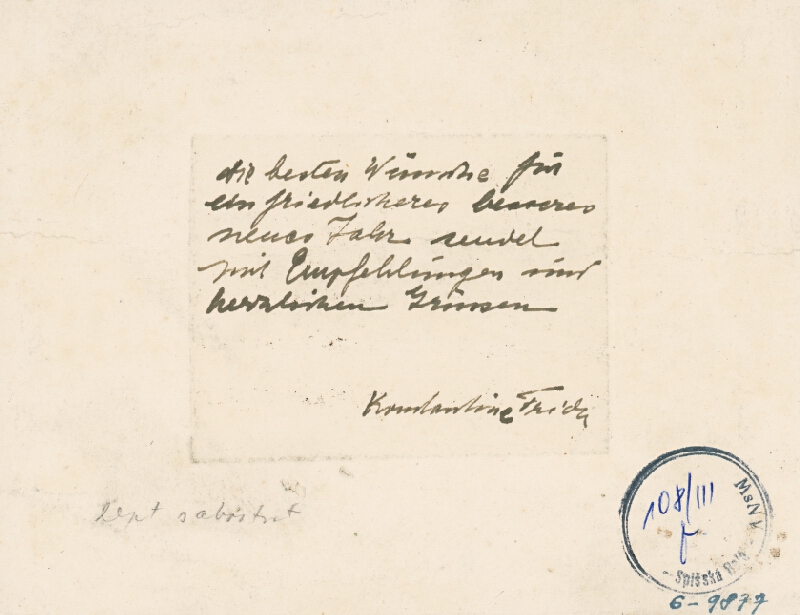 die besten Wünsche für
ein friedlicheres besseres
neues Jahr sendet
mit Empfehlungen und
herzlichen Grüssen
Konstantine Frida
lept
108/III
MsNV
Spišská
6-9877